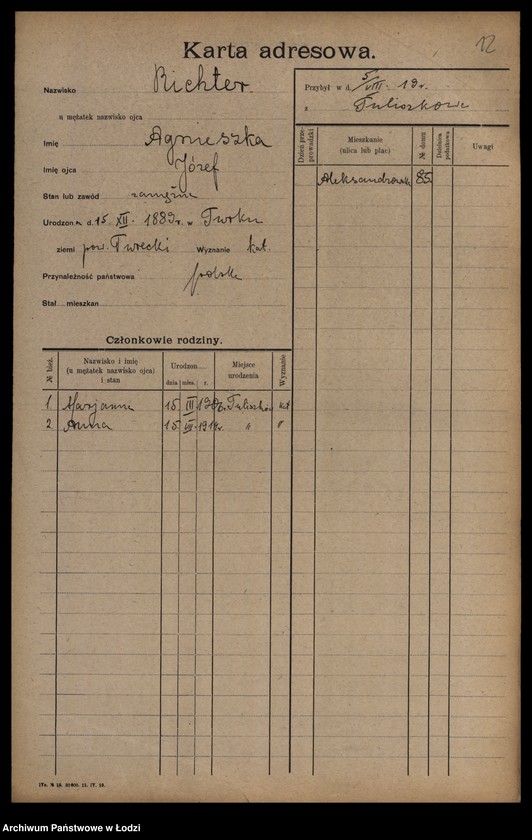 12
Karta adresowa.
Nazwisko Richter.
u mężatek nazwisko ojca
Imię Agnieszka
Imię ojca Józef
Stan lub zawód zamężna
Urodzon a d. 15 XII. 1889 r. w Turku
ziemi pow. Turecki Wyznanie kat.
Przynależność państwowa polska
Stał mieszkan
Przybył w d. 5/VIII. 19 r.
z Tuliszkowa
Dzień przeprowadzki
Mieszkanie (ulica lub plac)
№ domu
Dzielnica podatkowa
Uwagi
Aleksandrowsk 85
Członkowie rodziny.
№ bież.
Nazwisko i imię (u mężatek nazwisko ojca) i stan
Urodzon
dnia mies. r.
Miejsce urodzenia
Wyznanie
1. Marjanna 15 III Tuliszków kat
2. Anna 15 VII. 1914r. " "
Archiwum Państwowe w Łodzi